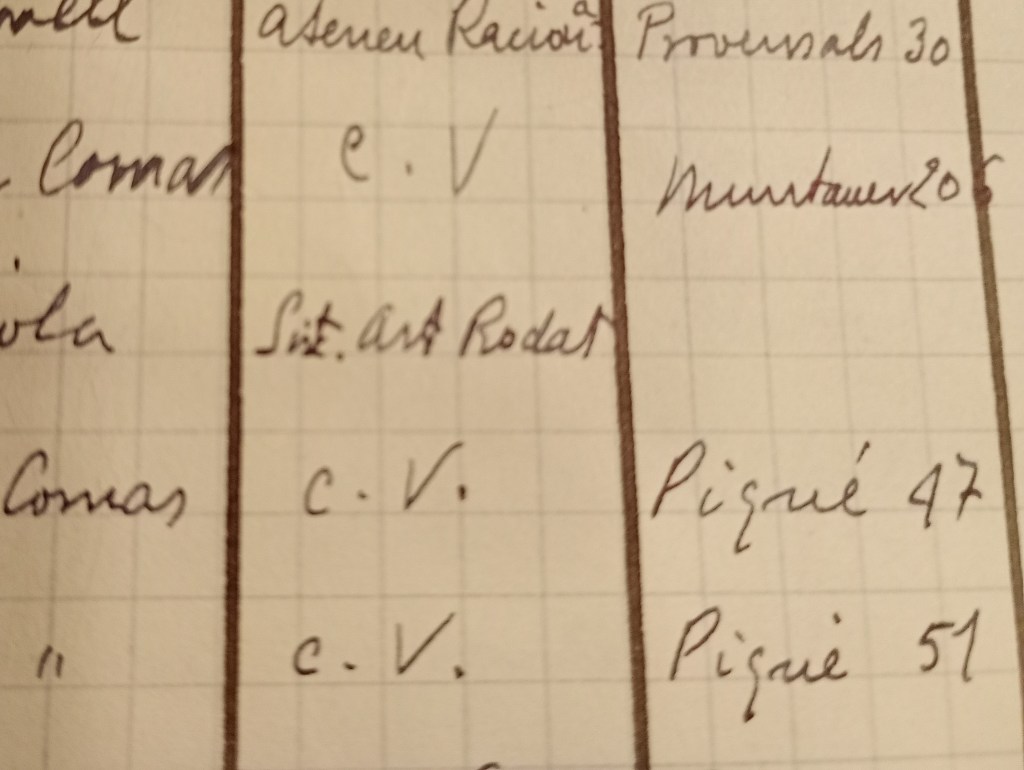 Ateneu Racion^a Provensals 30
Comas C. V Muntaner 206
Sit. Art Rodat
Comas C. V. Piqué 47
" C. V. Piqué 51